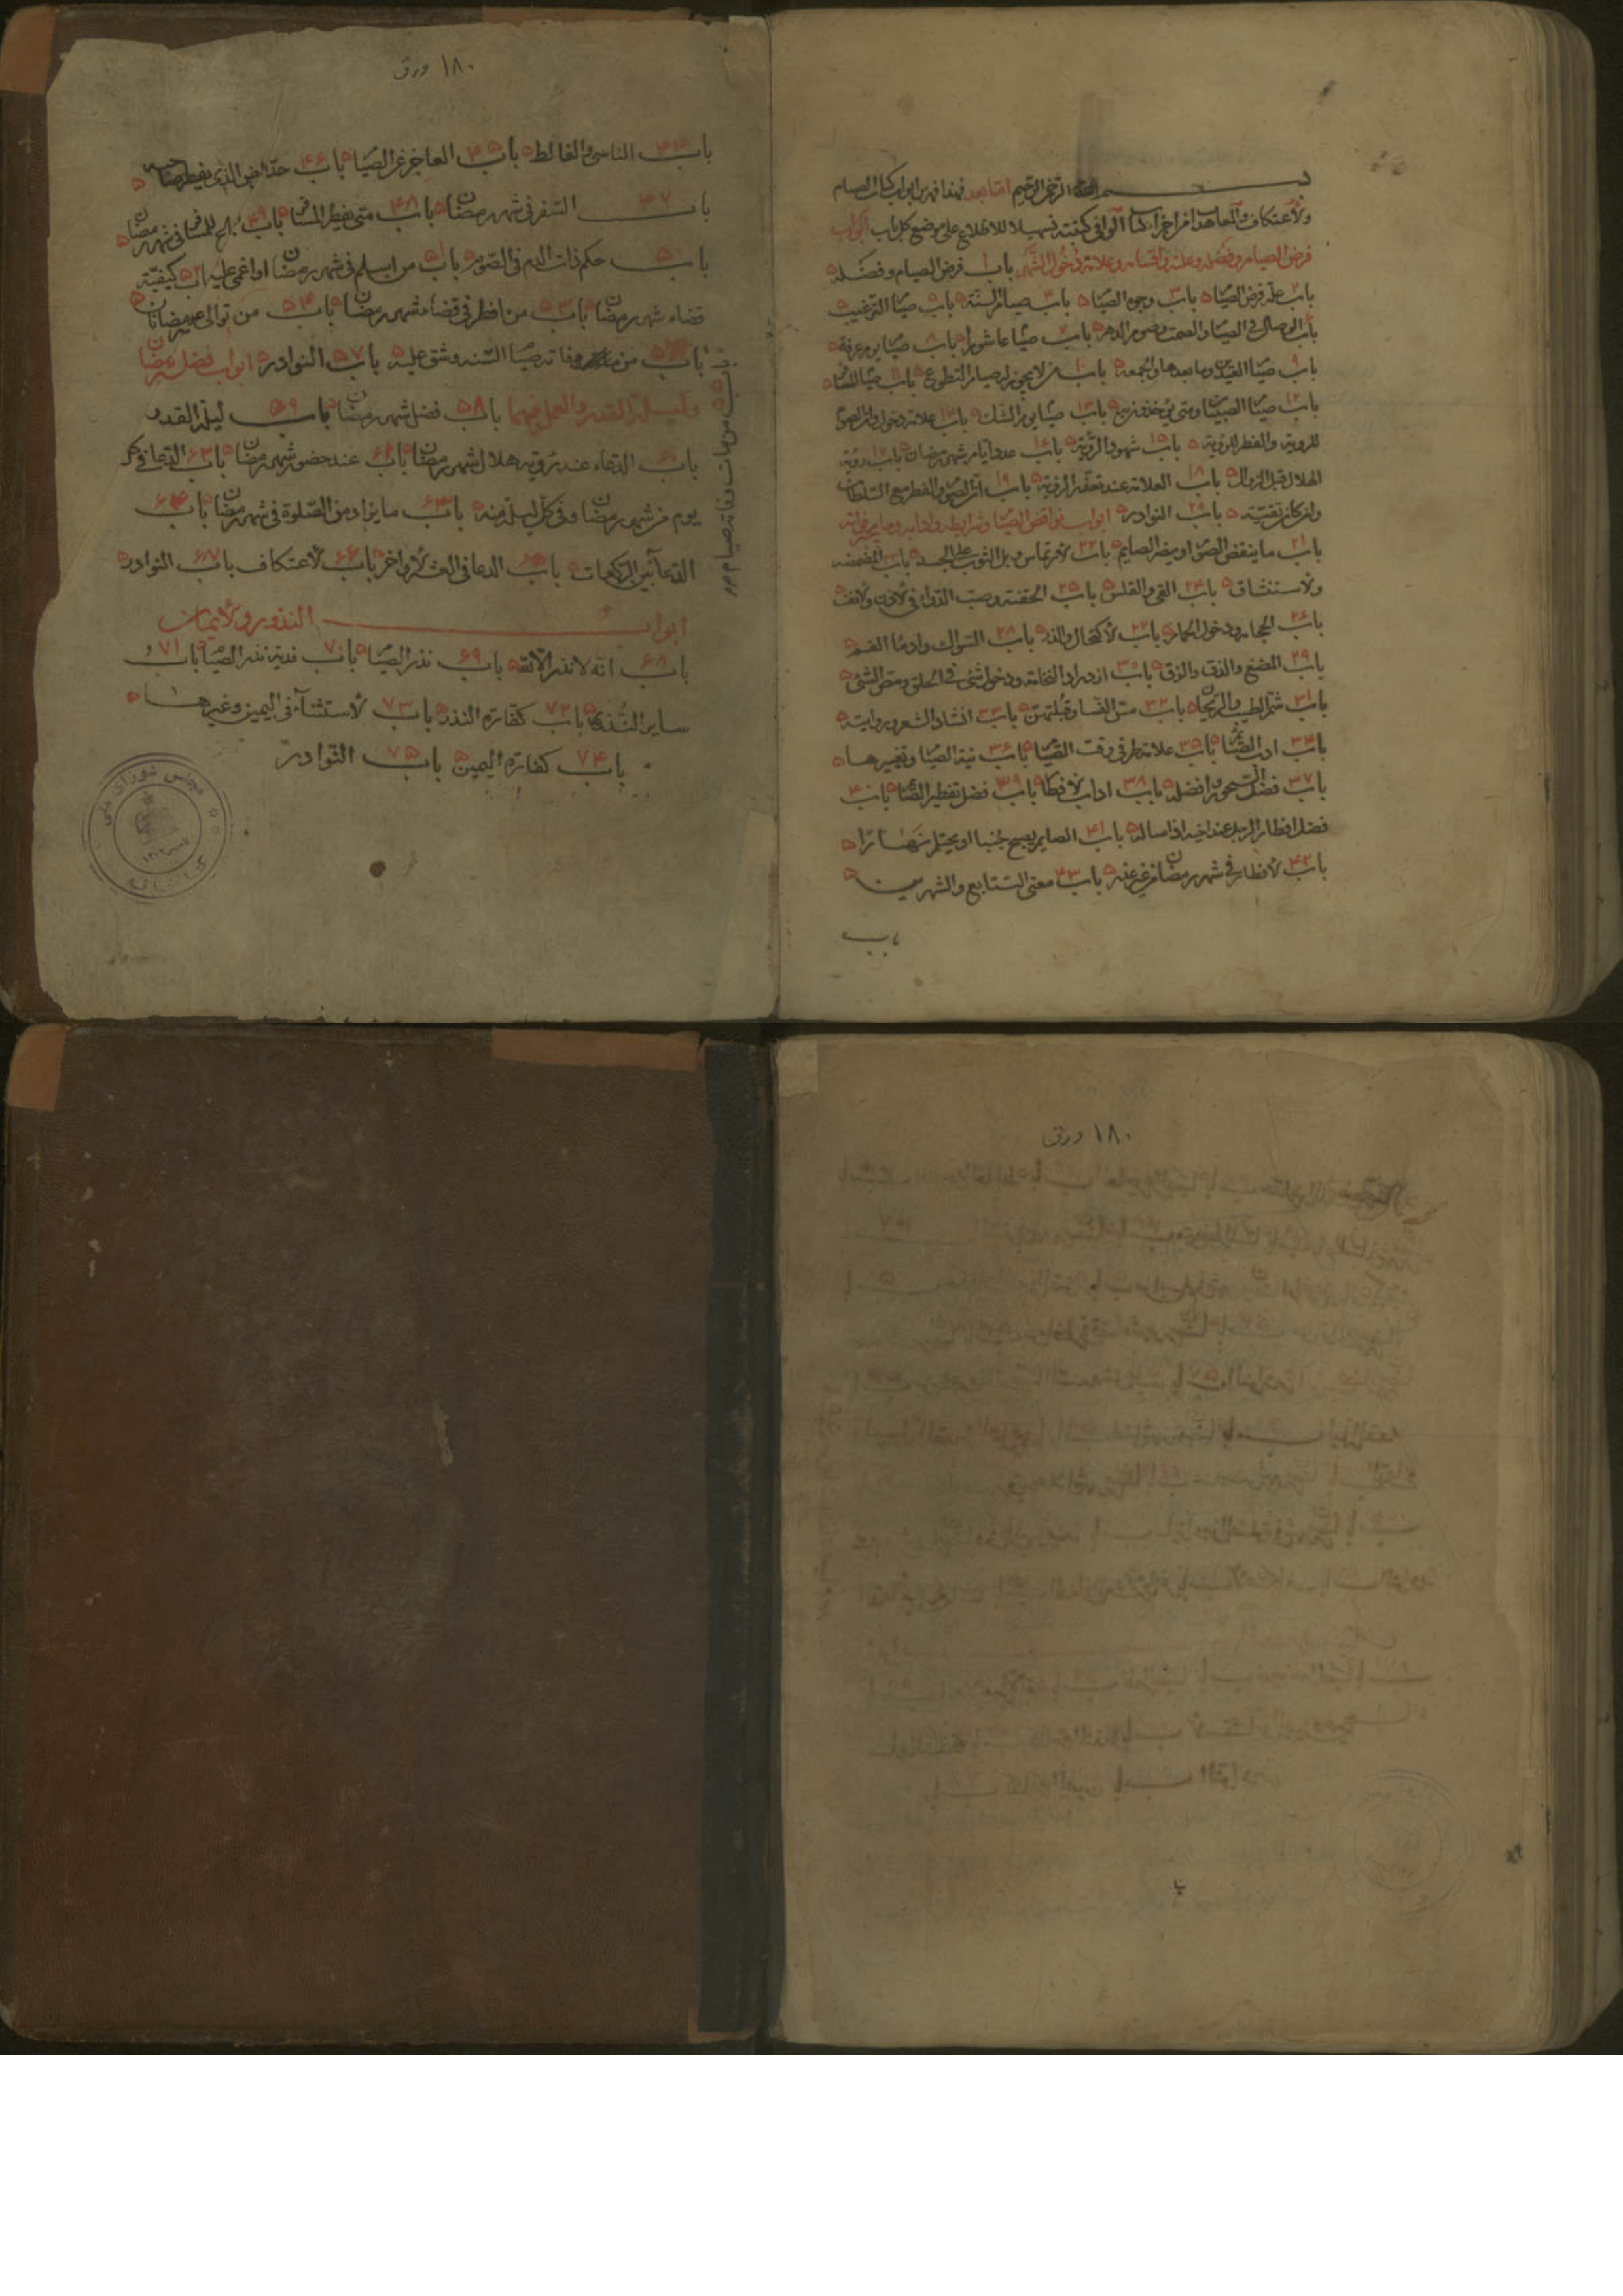 بسم الله الرحمن الرحيم اما بعد فهذا فهرس ابواب كتاب الصيام
والاعتكاف والمعاهدات من اجزاء كتاب الوافي كتبته تسهيلا للاطلاع على موضع كل باب ابواب
فرض الصيام وفضله وعلته واقسامه وعلامة دخول الشهر باب ١ فرض الصيام وفضله
باب ٢ علة فرض الصيام باب ٣ وجوه الصيام باب ٤ صيام السنة باب ٥ صيام الترغيب
باب ٦ الوصال في الصيام والصمت وصوم الدهر باب ٧ صيام عاشورا باب ٨ صيام يوم عرفة
باب ٩ صيام العيدين وما بعدها والجمعة باب ١٠ من لا يجوز له صيام التطوع باب ١١ صيام المسافر
باب ١٢ صيام الصبيان ومتى يؤخذون به باب ١٣ صيام يوم الشك باب ١٤ علامة دخوله وان الصوم
للروية والفطر للروية باب ١٥ شهود الرؤية باب ١٦ عدد ايام شهر رمضان باب ١٧ روية
الهلال قبل الزوال باب ١٨ العلامة عند تعذر الروية باب ١٩ ان الصوم والفطر مع السلطان
وان كان تقية باب ٢٠ النوادر ابواب نواقض الصيام وشرايطه وادابه وما يجبر فواته
باب ٢١ ما ينقض الصوم او يضر الصايم باب ٢٢ الارتماس وبل الثوب على الجسد باب المضمضة
والاستنشاق باب ٢٤ القي والقلس باب ٢٥ الحقنة وصب الدواء في الاذن والانف
باب ٢٦ الحجامة ودخول الحمام باب ٢٧ الاكتحال والذر باب ٢٨ السواك وادماء الفم
باب ٢٩ المضغ والذوق والزق باب ٣٠ ازدراد النخامة ودخول شئ في الحلق ومص الشئ
باب ٣١ شم الطيب والريحان باب ٣٢ مس النساء وقبلتهن باب ٣٣ انشاد الشعر وروايته
باب ٣٤ ادب الصائم باب ٣٥ علامة طرفي وقت الصيام باب ٣٦ نية الصيام وتغييرها
باب ٣٧ فضل السحور وافضله باب ٣٨ اداب الافطار باب ٣٩ فضل تفطير الصائم باب ٤٠
فضل افطار الرجل عند اخيه اذا ساله باب ٤١ الصايم يصبح جنبا او يحتلم نهارا
باب ٤٢ الافطار في شهر رمضان من غير علة باب ٤٣ معنى التتابع والشهرين
باب
١٨٠ ورق
باب ٤٤ الناسي والغالط باب ٤٥ العاجز عن الصيام باب ٤٦ حد المرض الذي يفطر صاحبه
باب ٤٧ السفر في شهر رمضان باب ٤٨ متى يفطر المسافر باب ٤٩ الجماع للمسافر في شهر رمضان
باب ٥٠ حكم ذات الدم في الصوم باب ٥١ من اسلم في شهر رمضان او اغمي عليه باب ٥٢ كيفية
قضاء شهر رمضان باب ٥٣ من افطر في قضاء شهر رمضان باب ٥٤ من توالى عليه رمضانان
باب ٥٥ من مات وفاته صيام
باب ٥٦ من فاته صيام السنة وشق عليه باب ٥٧ النوادر ابواب فضل شهر رمضان
وليلة القدر والعمل فيهما باب ٥٨ فضل شهر رمضان باب ٥٩ ليلة القدر
باب الدعاء عند رؤية هلال شهر رمضان باب عند حضور شهر رمضان باب الدعا في كل
يوم من شهر رمضان وفي كل ليلة منه باب ٦٣ ما يزاد من الصلوة في شهر رمضان باب ٦٤
الدعا بين الركعات باب ٦٥ الدعا في العشر الاواخر باب ٦٦ الاعتكاف باب ٦٧ النوادر
ابواب النذور والايمان
باب ٦٨ انه لا نذر الا لله باب ٦٩ نذر الصيام باب ٧٠ فدية نذر الصيام باب ٧١
ساير النذور باب ٧٢ كفارة النذر باب ٧٣ الاستثناء في اليمين وغيرها
باب ٧٤ كفارة اليمين باب ٧٥ النوادر
كتابخانه مجلس شورای ملی
١٨٠ ورق